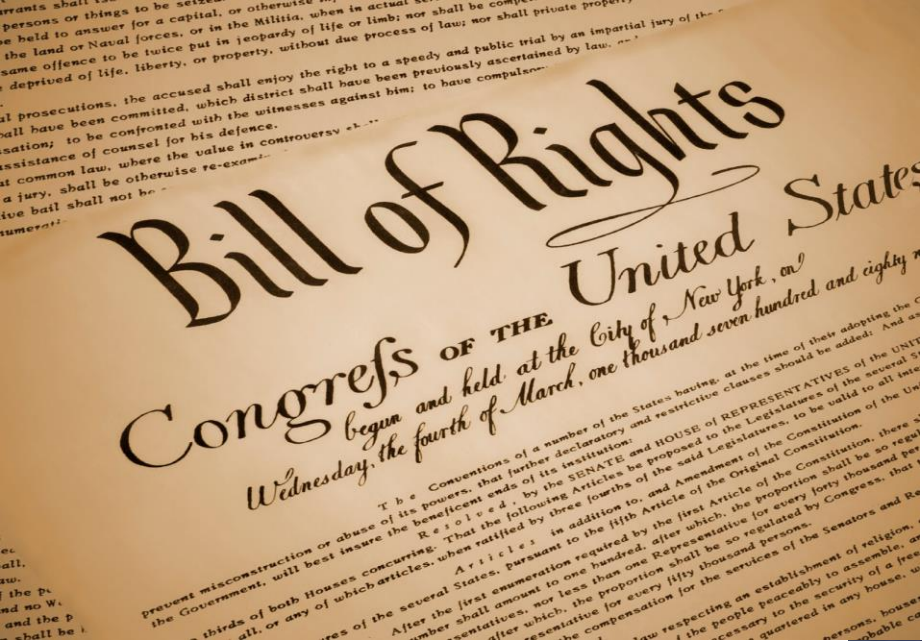 arrants shall
persons or things to be seized
be held to answer for a capital, or otherwise
the land or Naval forces, or in the Militia, when in actual
same offence to be twice put in jeopardy of life or limb; nor shall be
deprived of life, liberty, or property, without due process of law; nor shall private property
al prosecutions, the accused shall enjoy the right to a speedy and public trial by an impartial jury of the
hall have been committed, which district shall have been previously ascertained by law,
sation; to be confronted with the witnesses against him; to have compulsory
assistance of counsel for his defence.
at common law, where the value in controversy
a jury, shall be otherwise
ive bail shall not be
Bill of Rights
Congreſs OF THE United States
begun and held at the City of New York, on
Wednesday, the fourth of March, one thousand seven hundred and eighty
The Conventions of a number of the States having, at the time of their adopting the
prevent misconstruction or abuse of its powers, that further declaratory and restrictive clauses should be added: And
the Government, will best insure the beneficent ends of its institution:
Resolved, by the SENATE and HOUSE of REPRESENTATIVES of the
thirds of both Houses concurring. That the following Articles be proposed to the Legislatures of the several
all, or any of which articles, when ratified by three fourths of the said Legislatures, to be valid to all
Articles in addition to, and Amendment of the Constitution of the
res of the several States, pursuant to the fifth Article of the Original Constitution.
After the first enumeration required by the first Article of the Constitution, there
mber shall amount to one hundred, after which, the proportion shall be so
sentatives, nor less than one Representative for every forty thousand
after which, the proportion shall be so regulated by Congress, that
sentative for every fifty thousand persons.
the compensation for the services of the Senators and
law respecting an establishment of religion,
the people peaceably to assemble,
ssary to the security of a free
quartered in any house,
persons,